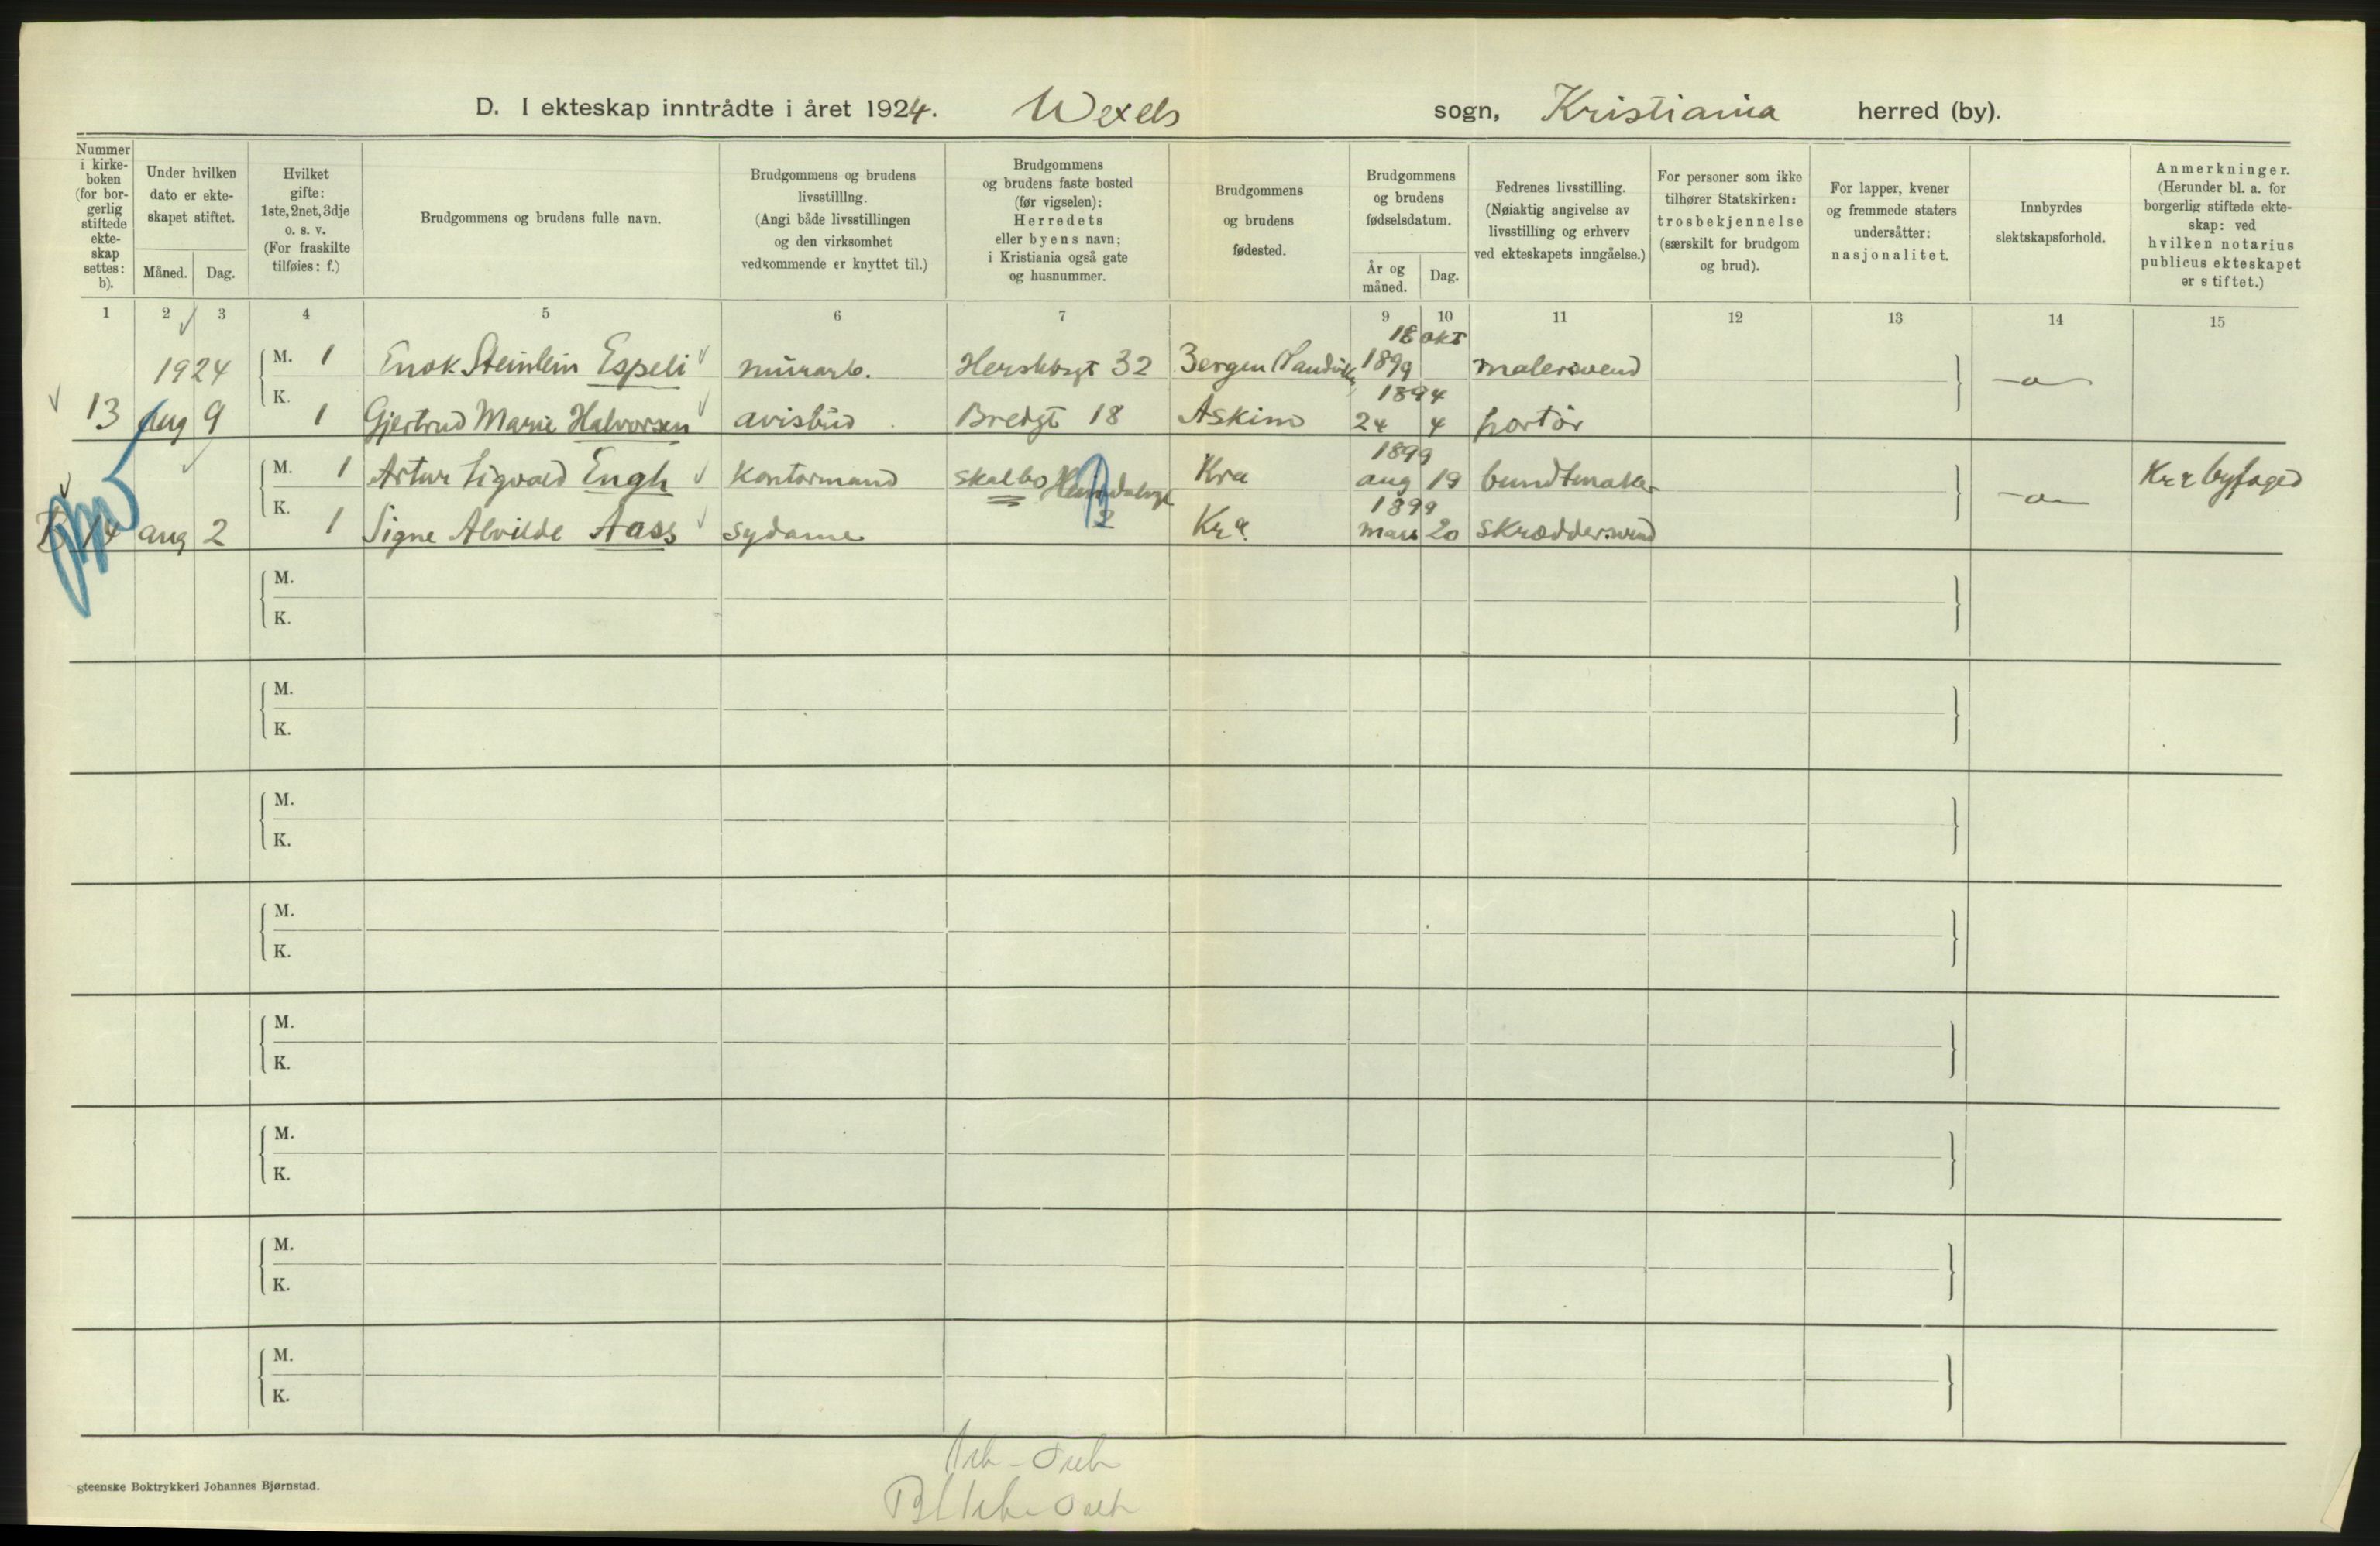 D. I ekteskap inntrådte i året 1924. Wexels sogn, Kristiania herred (by).
Nummer i kirke-boken (for bor-gerlig stiftede ekte-skap settes: b).
Under hvilken dato er ekte-skapet stiftet.
Måned. Dag.
Hvilket gifte: 1ste, 2net, 3dje o. s. v. (For fraskilte tilføies: f.)
Brudgommens og brudens fulle navn.
Brudgommens og brudens livsstilllng. (Angi både livsstillingen og den virksomhet vedkommende er knyttet til.)
Brudgommens og brudens faste bosted (før vigselen): Herredets eller byens navn; i Kristiania også gate og husnummer.
Brudgommens og brudens fødested.
Brudgommens og brudens fødselsdatum.
År og måned. Dag.
Fedrenes livsstilling. (Nøiaktig angivelse av livsstilling og erhverv ved ekteskapets inngåelse.)
For personer som ikke tilhører Statskirken: trosbekjennelse (særskilt for brudgom og brud).
For lapper, kvener og fremmede staters undersåtter: nasjonalitet.
Innbyrdes slektskapsforhold.
Anmerkninger. (Herunder bl. a. for borgerlig stiftede ekte-skap: ved hvilken notarius publicus ekteskapet er stiftet.)
1 2 3 4 5 6 7 9 10 11 12 13 14 15
18 okt
1924 M. 1 Enok Steinlein Espeli murarb. Herslebsgt 32 Bergen (Sandvik 1899 malersvend
1894
13 aug 9 K. 1 Gjertrud Marie Halvorsen avisbud Bredgt 18 Askim 24 4 portør
1899
M. 1 Artur Sigvald Engh kontormand Skalbo Heimdalsgt Kra aug 19 bundtmaker Kra byfoged
2 1899
B 14 aug 2 K. 1 Signe Alvilde Aass sydame Kra. mars 20 skræddersvend
M.
K.
M.
K.
M.
K.
M.
K.
M.
K.
M.
K.
M.
K.
M.
K.
gteenske Boktrykkeri Johannes Bjørnstad.